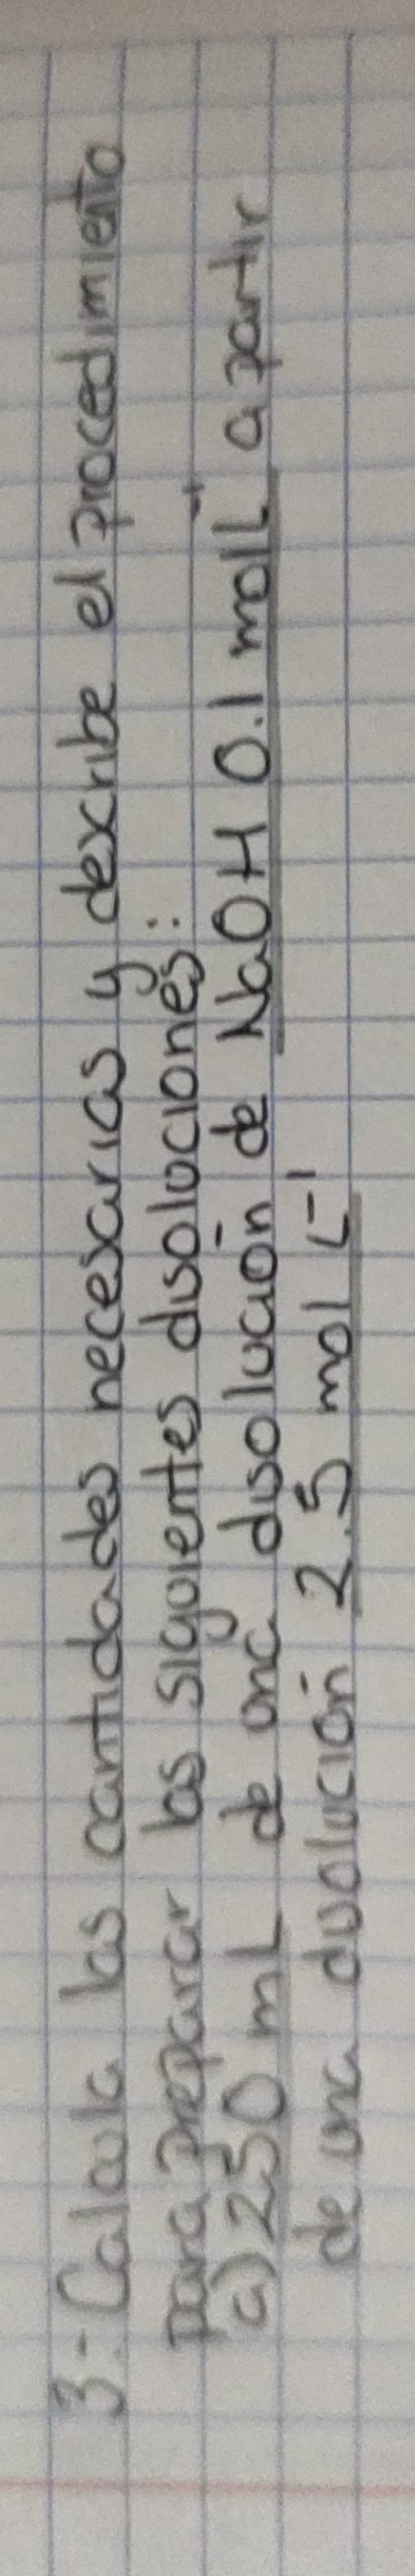 3.- Calcula las cantidades necesarias y describe el procedimiento
para preparar las siguientes disoluciones:
a) 250 mL de una disolución de NaOH 0.1 mol L⁻¹ a partir
de una disolución 2.5 mol L⁻¹